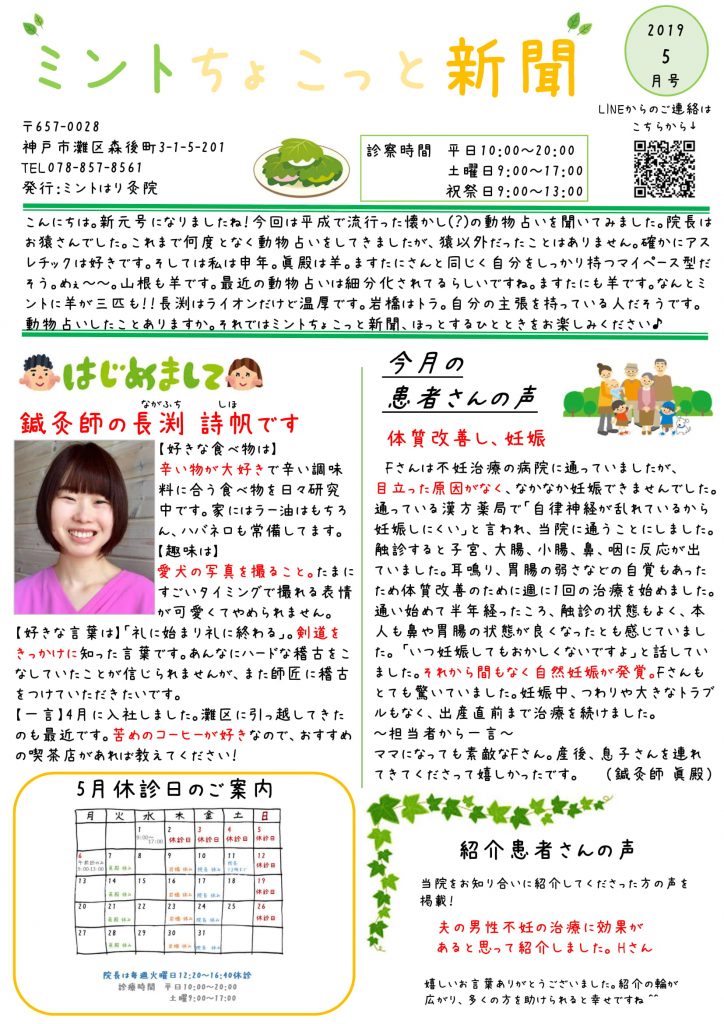 ミントちょこっと新聞
2019
5
月号
LINEからのご連絡は
こちらから↓
〒657-0028
神戸市灘区森後町3-1-5-201
TEL078-857-8561
発行:ミントはり灸院
診察時間　平日10:00~20:00
土曜日9:00~17:00
祝祭日9:00~13:00
こんにちは。新元号になりましたね!今回は平成で流行った懐かし(?)の動物占いを聞いてみました。院長は
お猿さんでした。これまで何度となく動物占いをしてきましたが、猿以外だったことはありません。確かにアス
レチックは好きです。そしては私は申年。眞殿は羊。ますたにさんと同じく自分をしっかり持つマイペース型だ
そう。めぇ~~。山根も羊です。最近の動物占いは細分化されてるらしいですね。ますたにも羊です。なんとミ
ントに羊が三匹も!!長渕はライオンだけど温厚です。岩橋はトラ。自分の主張を持っている人だそうです。
動物占いしたことありますか。それではミントちょこっと新聞、ほっとするひとときをお楽しみください♪
はじめまして
ながふち　しほ
鍼灸師の長渕 詩帆です
【好きな食べ物は】
辛い物が大好きで辛い調味
料に合う食べ物を日々研究
中です。家にはラー油はもちろ
ん、ハバネロも常備してます。
【趣味は】
愛犬の写真を撮ること。たまに
すごいタイミングで撮れる表情
が可愛くてやめられません。
【好きな言葉は】「礼に始まり礼に終わる」。剣道を
きっかけに知った言葉です。あんなにハードな稽古をこ
なしていたことが信じられませんが、また師匠に稽古
をつけていただきたいです。
【一言】4月に入社しました。灘区に引っ越してきた
のも最近です。苦めのコーヒーが好きなので、おすすめ
の喫茶店があれば教えてください!
5月休診日のご案内
月 火 水 木 金 土 日
1 2 3 4 5
9:00~17:00 休診日 休診日 休診日 休診日
6 7 8 9 10 11 12
午前診のみ 9:00-13:00 眞殿 休み 岩橋 休み 院長 休み 院長 休診日
13 14 15 16 17 18 19
眞殿 休み 岩橋 休み 院長 休み 休診日
20 21 22 23 24 25 26
眞殿 休み 岩橋 休み 院長 休み 休診日
27 28 29 30 31
眞殿 休み 岩橋 休み 院長 休み
院長は毎週火曜日12:20~16:40休診
診療時間　平日10:00~20:00
土曜9:00~17:00
今月の
患者さんの声
体質改善し、妊娠
Fさんは不妊治療の病院に通っていましたが、
目立った原因がなく、なかなか妊娠できませんでした。
通っている漢方薬局で「自律神経が乱れているから
妊娠しにくい」と言われ、当院に通うことにしました。
触診すると子宮、大腸、小腸、鼻、咽に反応が出
ていました。耳鳴り、胃腸の弱さなどの自覚もあった
ため体質改善のために週に1回の治療を始めました。
通い始めて半年経ったころ、触診の状態もよく、本
人も鼻や胃腸の状態が良くなったとも感じていまし
た。「いつ妊娠してもおかしくないですよ」と話してい
ました。それから間もなく自然妊娠が発覚。Fさんも
とても驚いていました。妊娠中、つわりや大きなトラブ
ルもなく、出産直前まで治療を続けました。
~担当者から一言~
ママになっても素敵なFさん。産後、息子さんを連れ
てきてくださって嬉しかったです。　(鍼灸師 眞殿)
紹介患者さんの声
当院をお知り合いに紹介してくださった方の声を
掲載!
夫の男性不妊の治療に効果が
あると思って紹介しました。Hさん
嬉しいお言葉ありがとうございました。紹介の輪が
広がり、多くの方を助けられると幸せですね^^